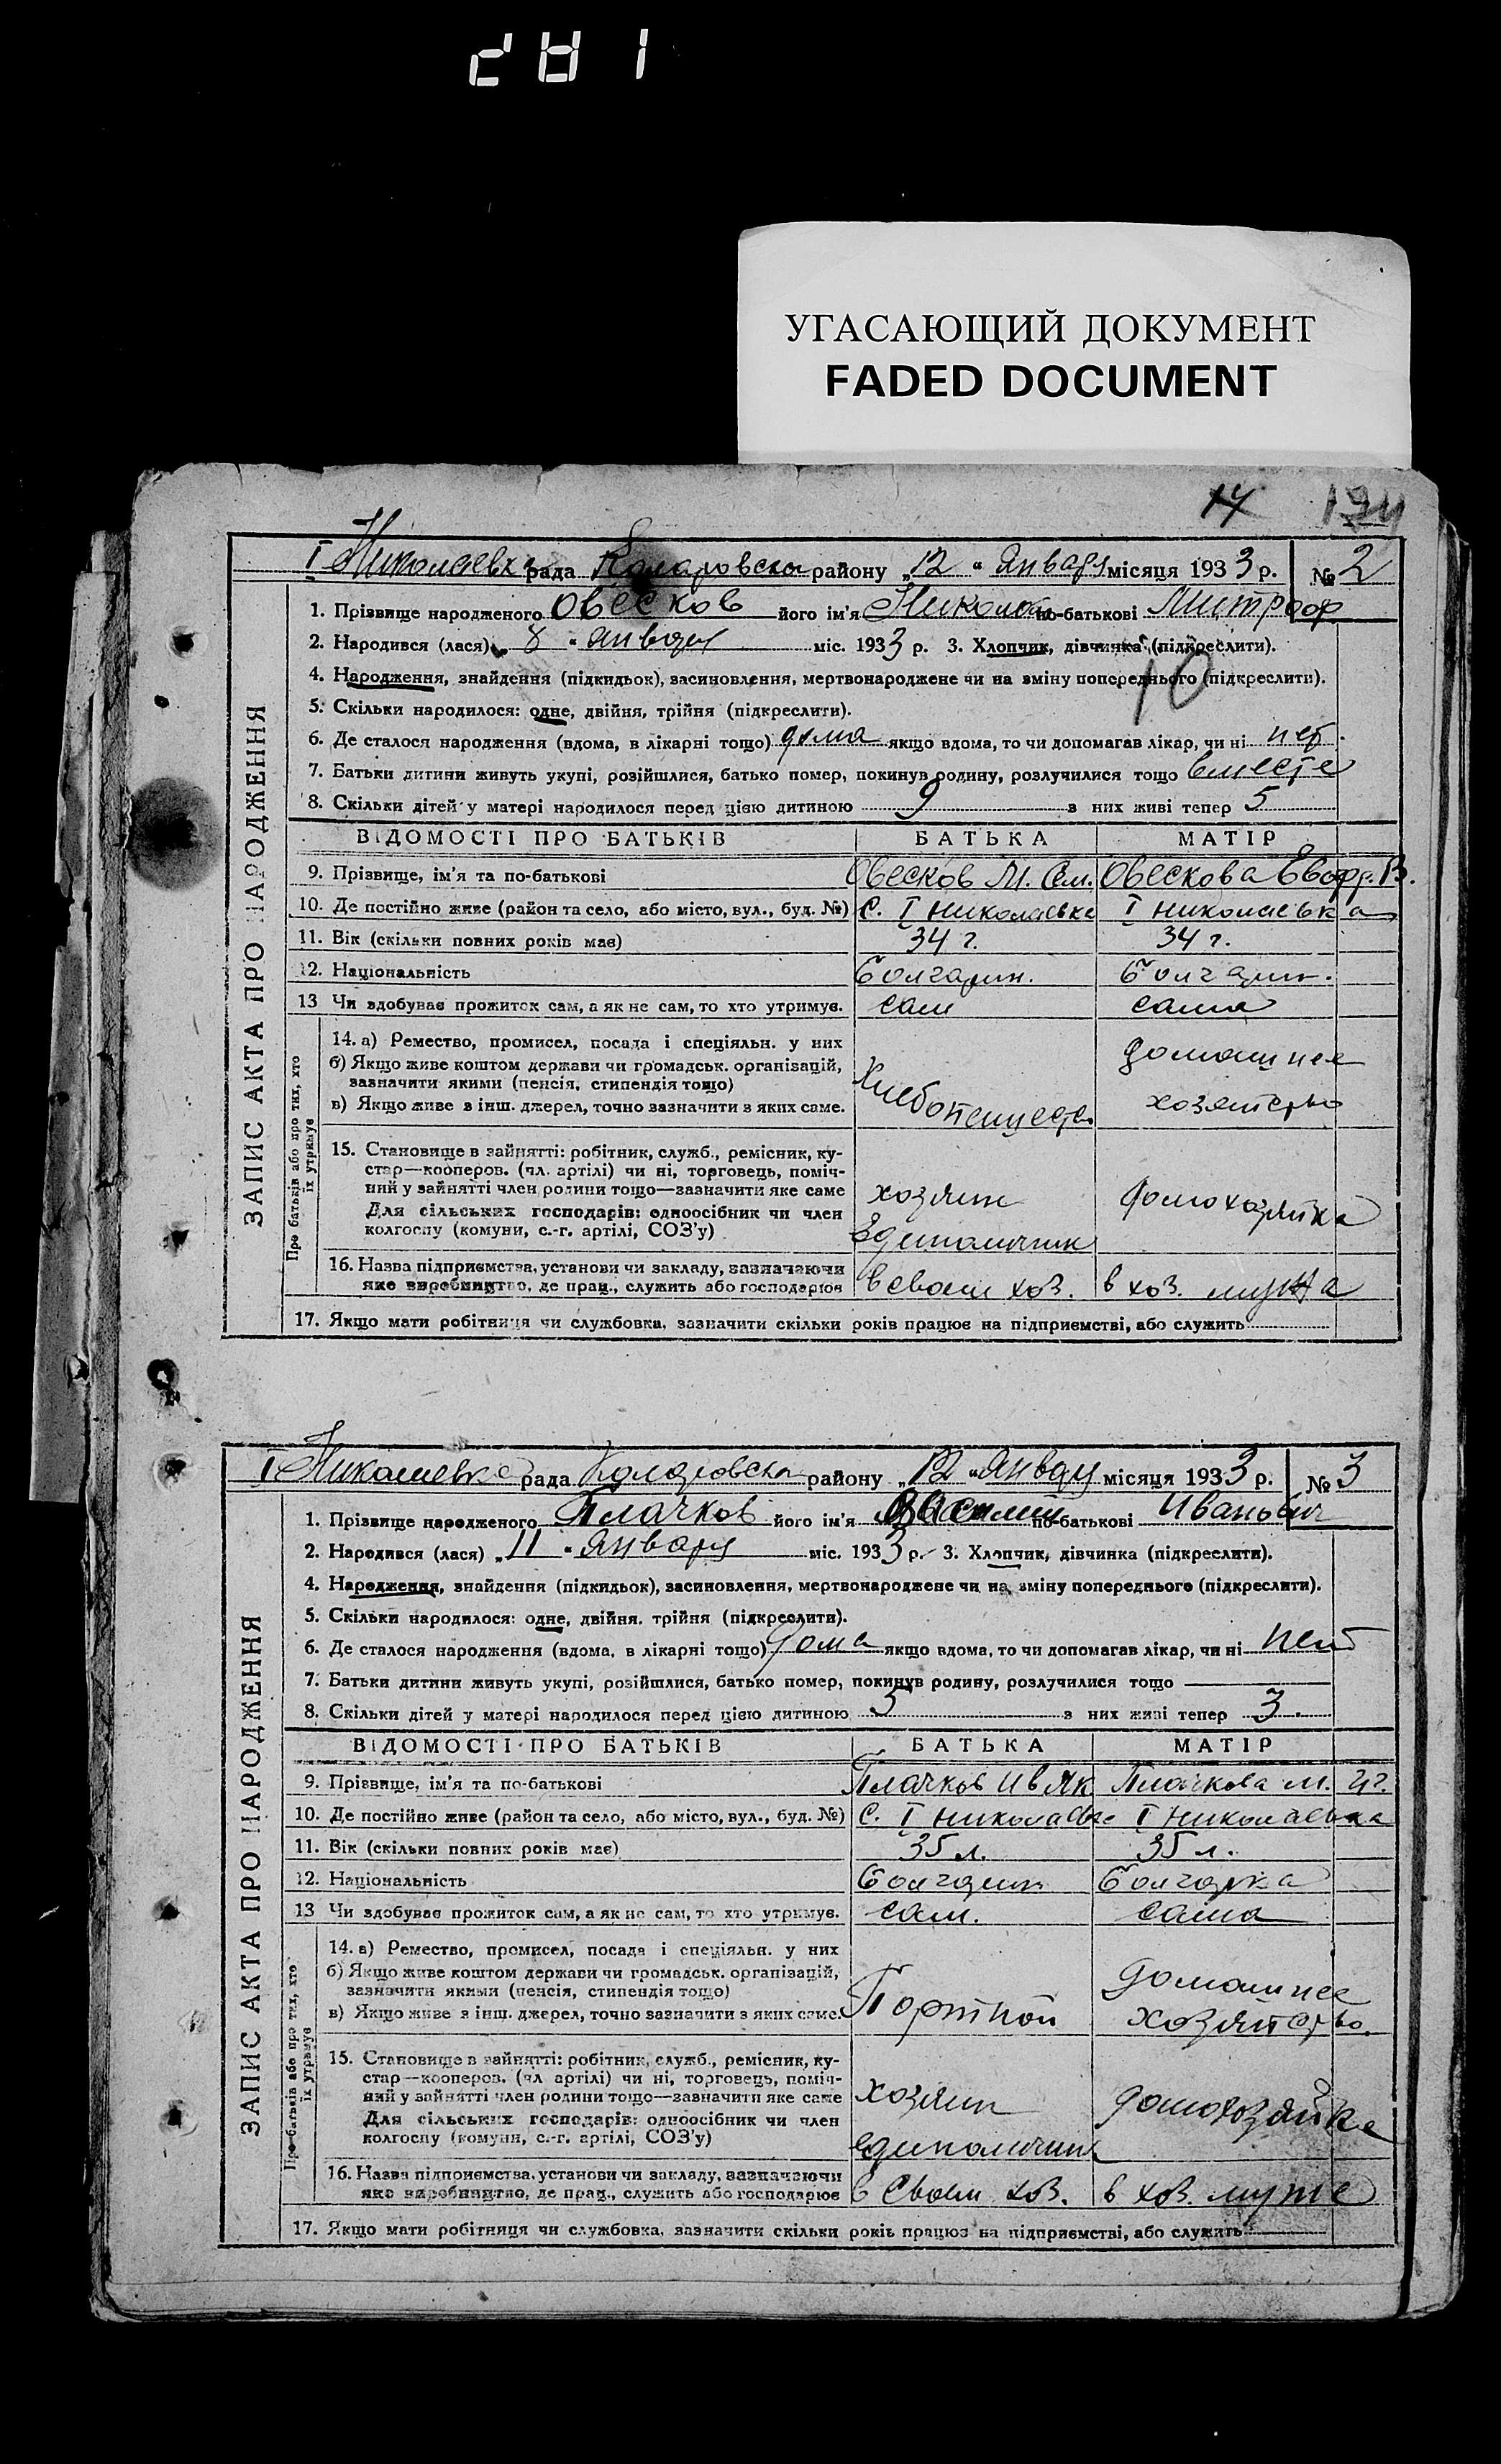 УГАСАЮЩИЙ ДОКУМЕНТ
FADED DOCUMENT
14
I Николаевка рада Коларовска району „12“ Январь місяця 1933 р. № 2
1. Прізвище народженого Овесков його ім'я Николай по-батькові Митроф
2. Народився (лася) „8“ января міс. 1933 р. 3. Хлопчик, дівчинка (підкреслити).
10
4. Народження, знайдення (підкидьок), засиновлення, мертвонароджене чи на зміну попереднього (підкреслити).
5. Скільки народилося: одне, двійня, трійня (підкреслити).
6. Де сталося народження (вдома, в лікарні тощо) дома якщо вдома, то чи допомагав лікар, чи ні нет
7. Батьки дитини живуть укупі, розійшлися, батько помер, покинув родину, розлучилися тощо вместе
8. Скільки дітей у матері народилося перед цією дитиною 9 з них живі тепер 5
ЗАПИС АКТА ПРО НАРОДЖЕННЯ
ВІДОМОСТІ ПРО БАТЬКІВ БАТЬКА МАТІР
9. Прізвище, ім'я та по-батькові Овесков М. Сем. Овескова Евфр. В.
10. Де постійно живе (район та село, або місто, вул., буд. №) с. I Николаевка I Николаевка
11. Вік (скільки повних років має) 34 г. 34 г.
12. Національність болгарин. болгарин.
13 Чи здобуває прожиток сам, а як не сам, то хто утримує. сам сама
Про батьків або про тих, хто їх утримує
14. а) Ремество, промисел, посада і спеціяльн. у них домашнее
б) Якщо живе коштом держави чи громадськ. організацій,
зазначити якими (пенсія, стипендія тощо) Хлебопашество
в) Якщо живе з інш. джерел, точно зазначити з яких саме. хозяйство
15. Становище в зайнятті: робітник, служб., ремісник, ку-
стар—кооперов. (чл. артілі) чи ні, торговець, поміч-
ний у зайнятті член родини тощо—зазначити яке саме хозяин домохозяйка
Для сільських господарів: одноосібник чи член
колгоспу (комуни, с.-г. артілі, СОЗ'у) Единоличник
16. Назва підприємства, установи чи закладу, зазначаючи
яке виробництво, де прац., служить або господарює в своем хоз. в хоз. мужа
17. Якщо мати робітниця чи службовка, зазначити скільки років працює на підприємстві, або служить
I Николаевка рада Коларовска району „12“ Январь місяця 1933 р. № 3
1. Прізвище народженого Плачков його ім'я Василий по-батькові Иванович
2. Народився (лася) „11“ Января міс. 1933 р. 3. Хлопчик, дівчинка (підкреслити).
4. Народження, знайдення (підкидьок), засиновлення, мертвонароджене чи на зміну попереднього (підкреслити).
5. Скільки народилося: одне, двійня, трійня (підкреслити).
6. Де сталося народження (вдома, в лікарні тощо) Дома якщо вдома, то чи допомагав лікар, чи ні нет
7. Батьки дитини живуть укупі, розійшлися, батько помер, покинув родину, розлучилися тощо
8. Скільки дітей у матері народилося перед цією дитиною 5 з них живі тепер 3.
ЗАПИС АКТА ПРО НАРОДЖЕННЯ
ВІДОМОСТІ ПРО БАТЬКІВ БАТЬКА МАТІР
9. Прізвище, ім'я та по-батькові Плачков Ив Як Плачкова М.
10. Де постійно живе (район та село, або місто, вул., буд. №) с. I Николаевка I Николаевка
11. Вік (скільки повних років має) 35 л. 35 л.
12. Національність болгарин болгарка
13 Чи здобуває прожиток сам, а як не сам, то хто утримує. сам. сама
Про батьків або про тих, хто їх утримує
14. а) Ремество, промисел, посада і спеціяльн. у них
б) Якщо живе коштом держави чи громадськ. організацій, домашнее
зазначити якими (пенсія, стипендія тощо)
в) Якщо живе з інш. джерел, точно зазначити з яких саме. Портной хозяйство.
15. Становище в зайнятті: робітник, служб., ремісник, ку-
стар—кооперов. (чл артілі) чи ні, торговець, поміч-
ний у зайнятті член родини тощо—зазначити яке саме хозяин домохозяйка
Для сільських господарів: одноосібник чи член
колгоспу (комуни, с.-г. артілі, СОЗ'у) единоличник
16. Назва підприємства, установи чи закладу, зазначаючи
яке виробництво, де прац., служить або господарює в своем хоз. в хоз. мужа
17. Якщо мати робітниця чи службовка, зазначити скільки років працює на підприємстві, або служить